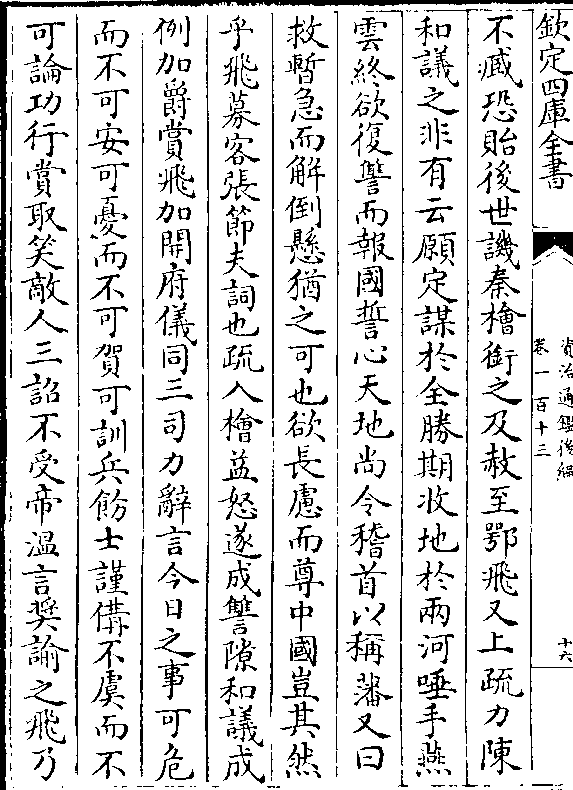 欽定四庫全書
資治通鑑後編
卷一百十三
十六
不臧恐貽後世譏秦檜銜之及赦至鄂飛又上疏力陳
和議之非有云願定謀於全勝期收地於兩河唾手燕
雲終欲復讐而報國誓心天地尚令稽首以稱藩又曰
救暫急而解倒懸猶之可也欲長慮而尊中國豈其然
乎飛募客張節夫詞也疏入檜益怒遂成讐隙和議成
例加爵賞飛加開府儀同三司力辭言今日之事可危
而不可安可憂而不可賀可訓兵飭士謹備不虞而不
可論功行賞取笑敵人三詔不受帝溫言奬諭之飛乃